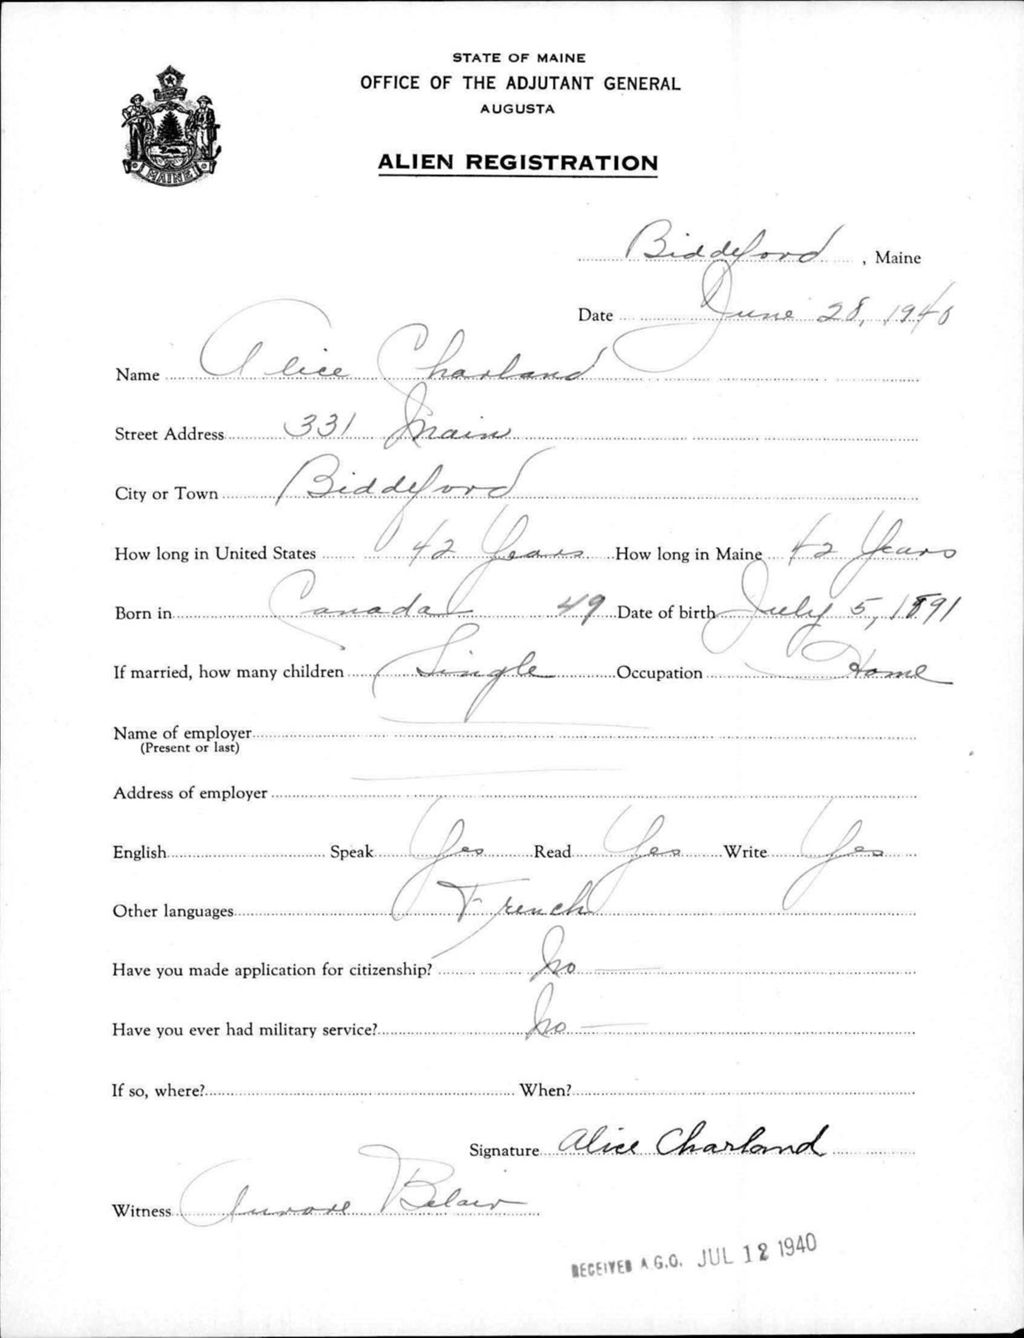 STATE OF MAINE
OFFICE OF THE ADJUTANT GENERAL
AUGUSTA
ALIEN REGISTRATION
MAINE
Biddeford, Maine
Date June 28, 1940
Name Alice Charland
Street Address 331 Main
City or Town Biddeford
How long in United States 42 Years How long in Maine 42 Years
Born in Canada 49 Date of birth July 5, 1891
If married, how many children Single Occupation Home
Name of employer
(Present or last)
Address of employer
English Speak Yes Read Yes Write Yes
Other languages French
Have you made application for citizenship? No —
Have you ever had military service? No —
If so, where? When?
Signature Alice Charland
Witness Aurore Belair
RECEIVED A.G.O. JUL 12 1940